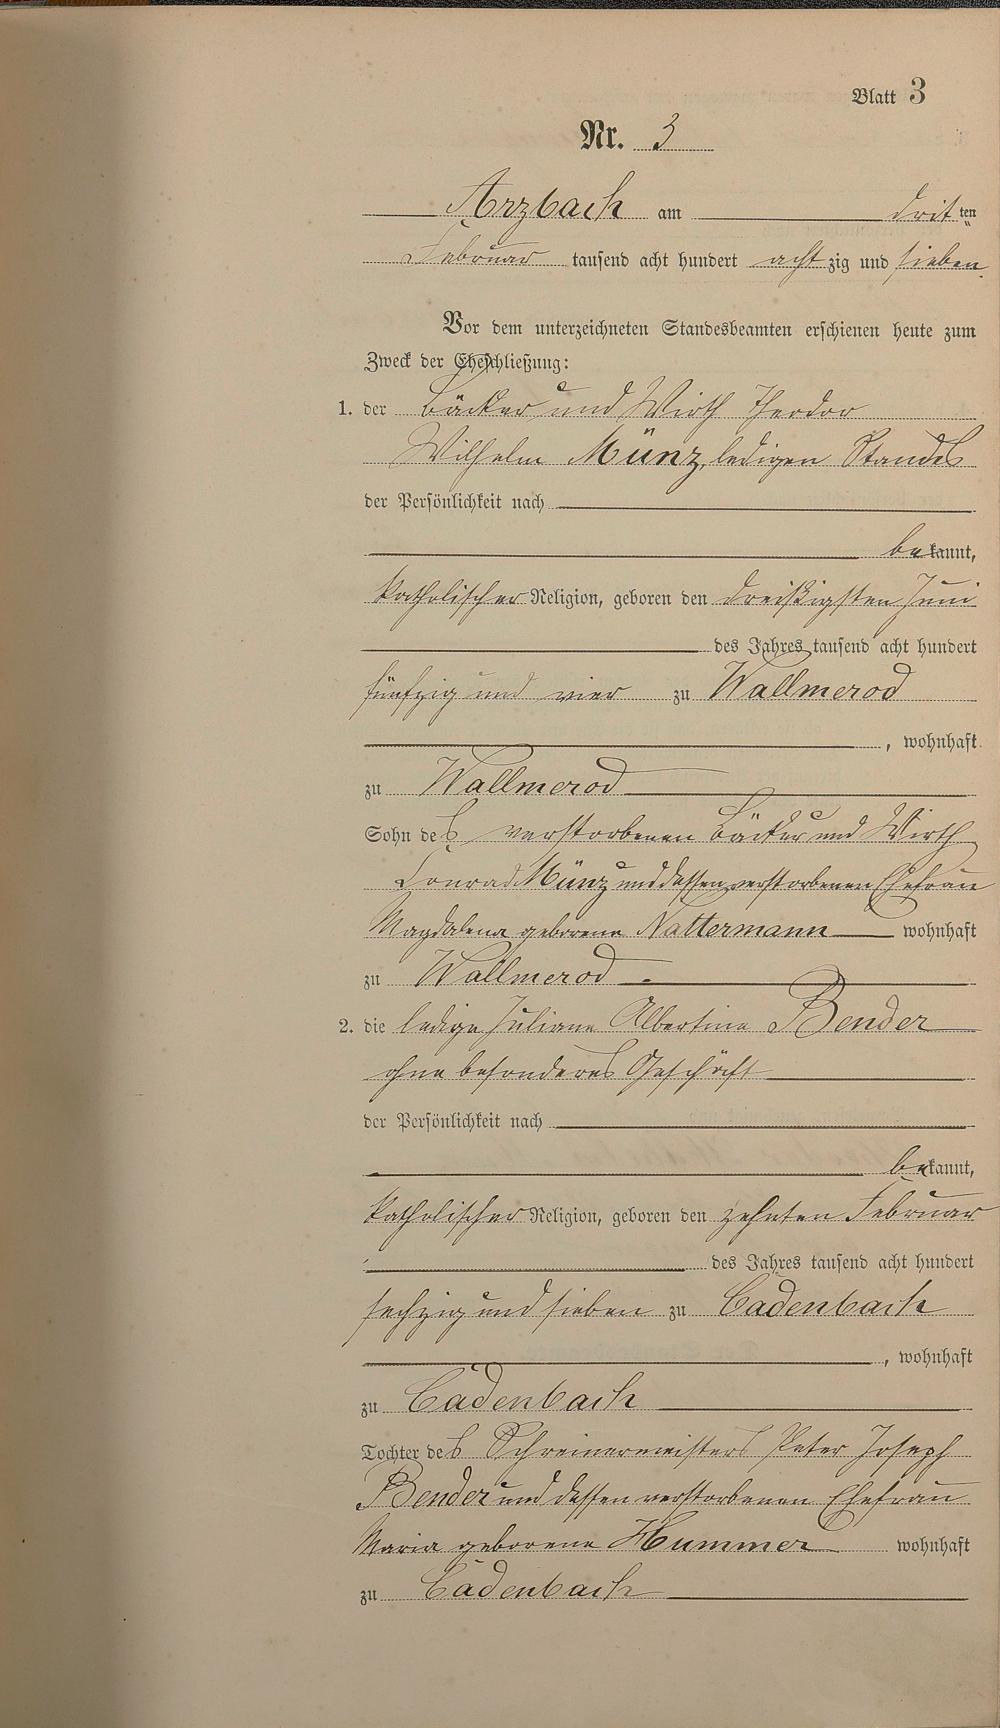 Blatt 3
Nr. 3
Arzbach am dritten
Februar tausend acht hundert achtzig und sieben.
Vor dem unterzeichneten Standesbeamten erschienen heute zum
Zweck der Eheschließung:
1. der Bäcker und Wirth Theodor
Wilhelm Münz, ledigen Standes
der Persönlichkeit nach
bekannt,
katholischer Religion, geboren den dreißigsten Juni
des Jahres tausend acht hundert
fünfzig und vier zu Wallmerod
, wohnhaft
zu Wallmerod
Sohn des verstorbenen Bäcker und Wirth
Conrad Münz und dessen verstorbenen Ehefrau
Magdalena geborene Nattermann wohnhaft
zu Wallmerod
2. die ledige Juliane Albertine Bender
ohne besonderes Geschäft
der Persönlichkeit nach
bekannt,
katholischer Religion, geboren den zehnten Februar
des Jahres tausend acht hundert
sechzig und sieben zu Cadenbach
, wohnhaft
zu Cadenbach
Tochter des Schreinermeisters Peter Joseph
Bender und dessen verstorbenen Ehefrau
Maria geborene Hummer wohnhaft
zu Cadenbach